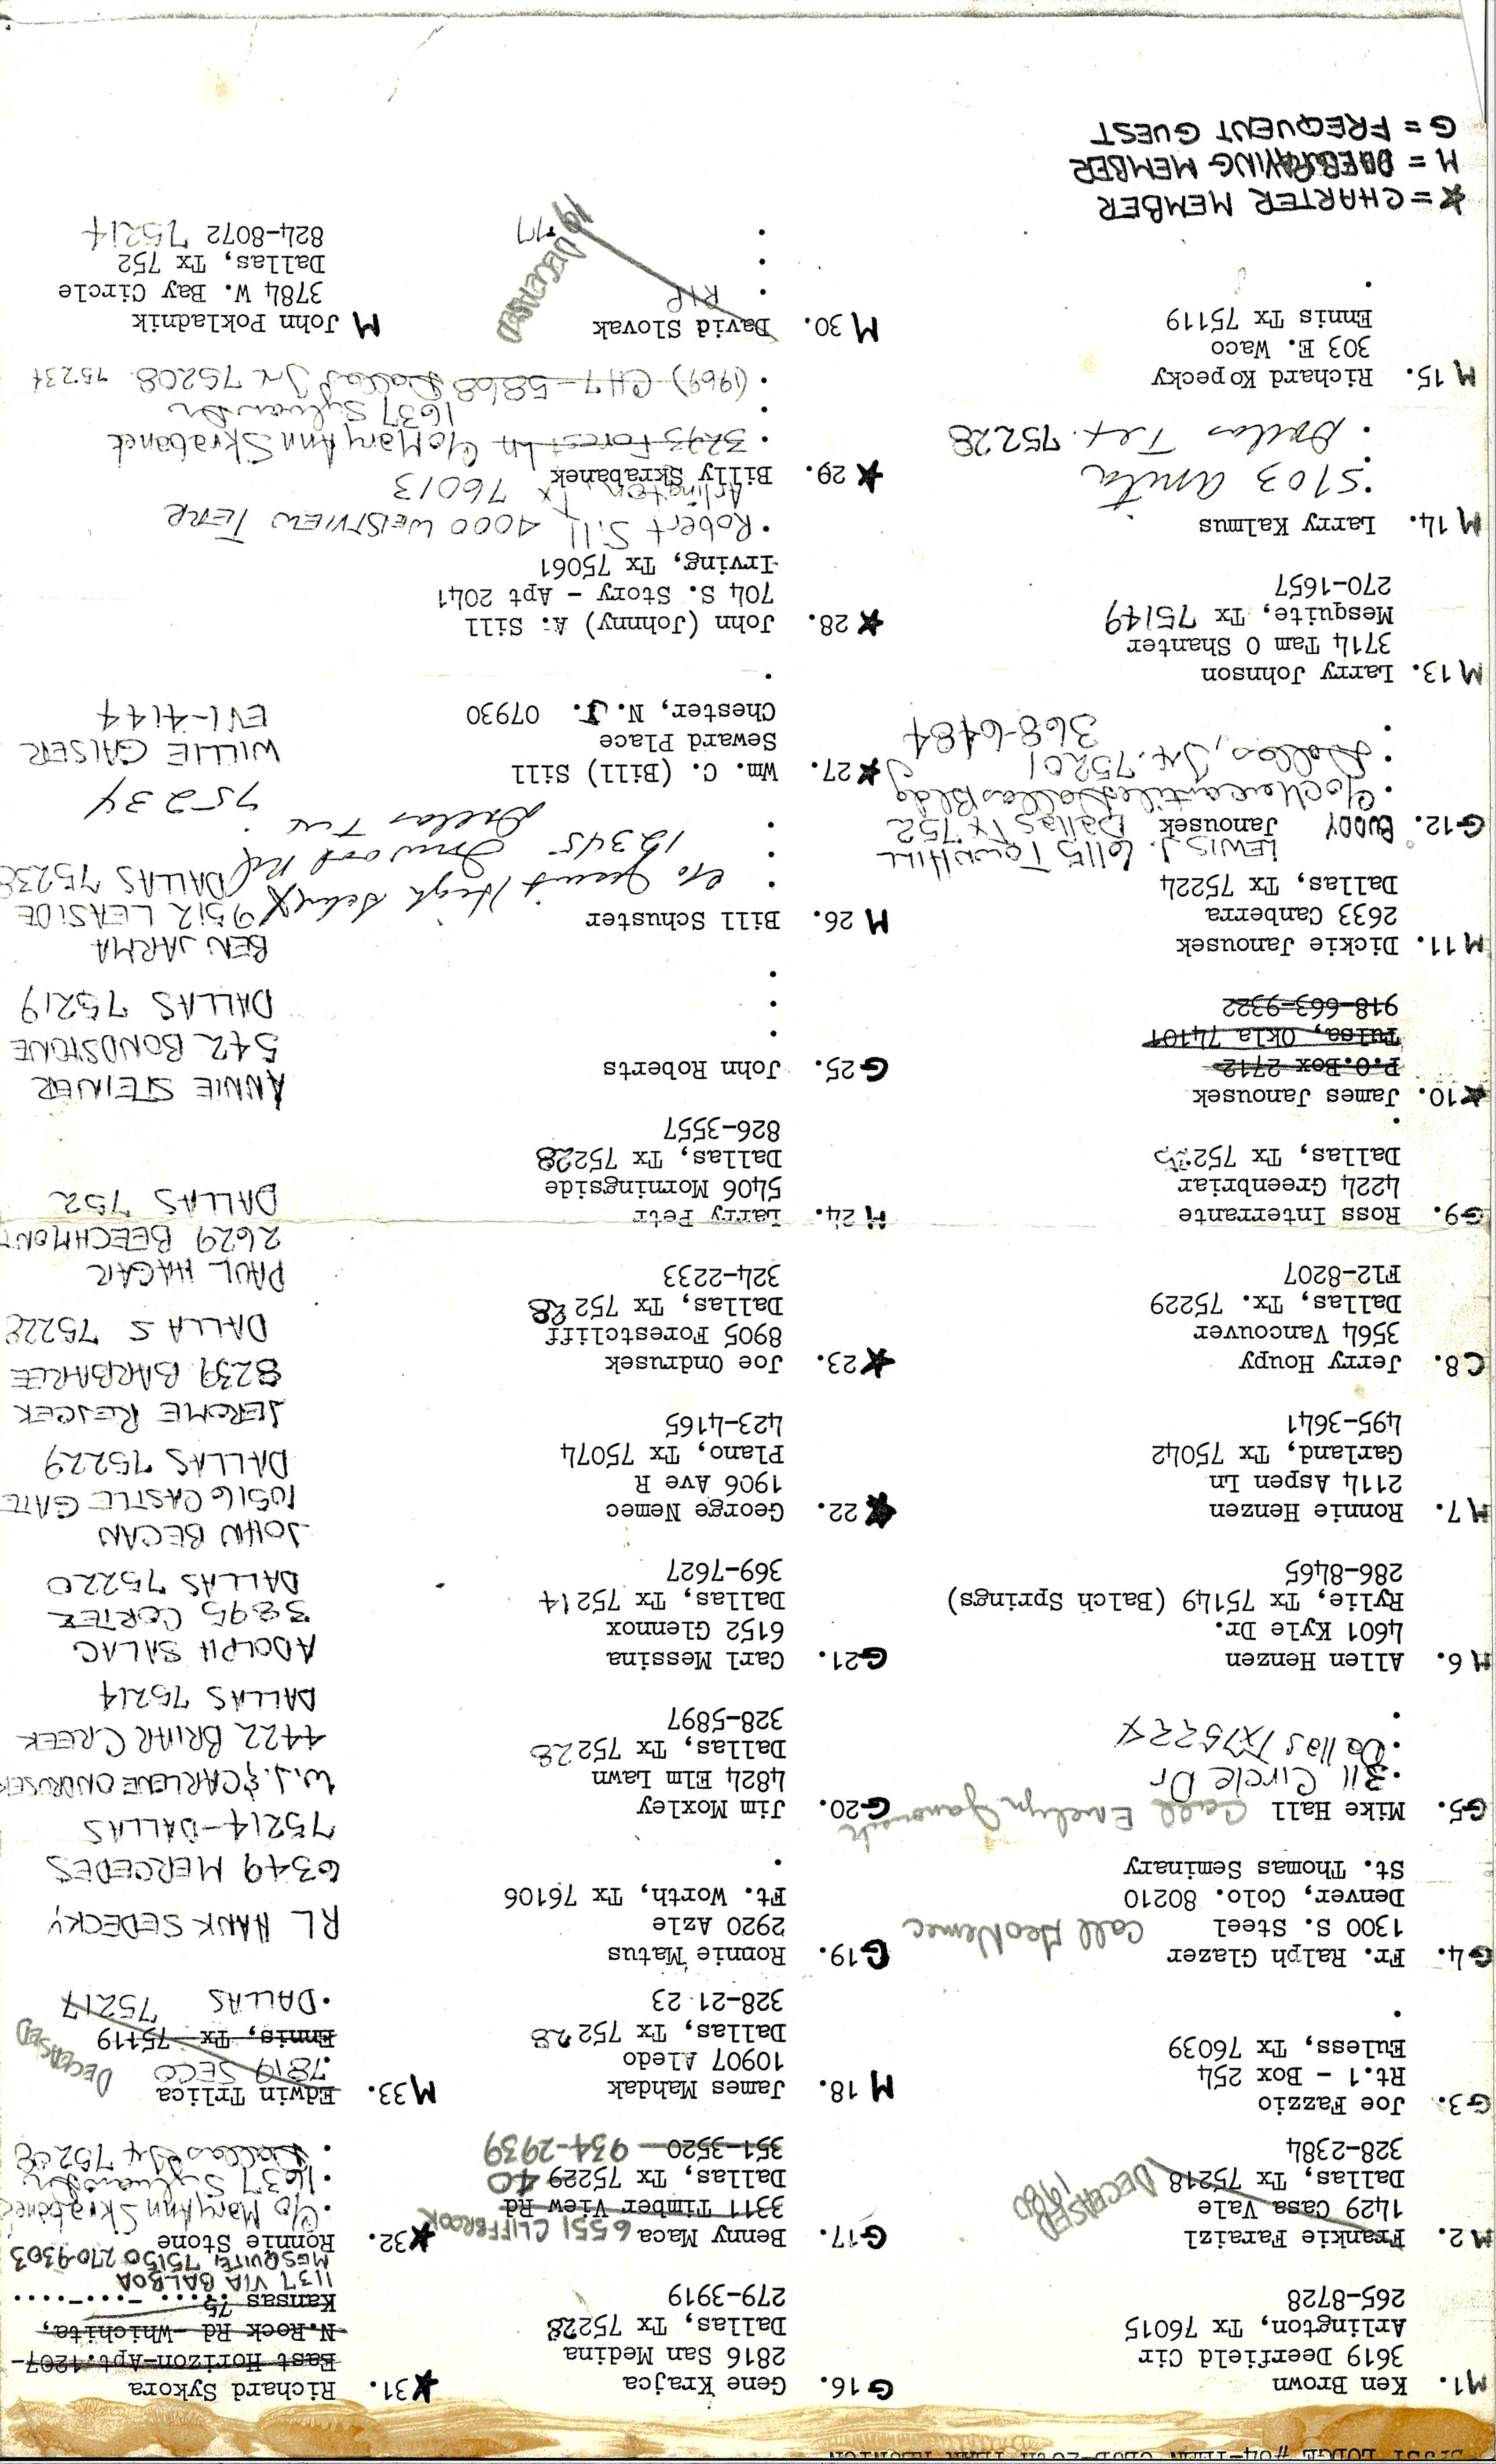 M1. Ken Brown
3619 Deerfield Cir
Arlington, Tx 76015
265-8728
M2. Frankie Paraizl
1429 Casa Vale
Dallas, Tx 75218
328-2384
DECEASED
1980
G3. Joe Fazzio
Rt.1 - Box 254
Euless, Tx 76039
G4. Fr. Ralph Glazer
1300 S. Steel
Denver, Colo. 80210
St. Thomas Seminary
Call Geo Nemec
G5. Mike Hall Call Evelyn
311 Circle Dr
Dallas Tx 75224
M6. Allen Henzen
4601 Kyle Dr.
Rylie, Tx 75149 (Balch Springs)
286-8465
M7. Ronnie Henzen
2114 Aspen Ln
Garland, Tx 75042
495-3641
C8. Jerry Houpy
3564 Vancouver
Dallas, Tx. 75229
F12-8207
G9. Ross Interrante
4224 Greenbriar
Dallas, Tx 752
★10. James Janousek
P.O.Box 2712
Tulsa, Okla 74101
918-663-9322
M11. Dickie Janousek
2633 Canberra
Dallas, Tx 75224
LEWIS J. 6115 TOWNHILL
G12. BUDDY Janousek Dallas Tx 752
c/o Mercantile Dallas Bldg
Dallas, Tx. 75201
368-6484
M13. Larry Johnson
3714 Tam O Shanter
Mesquite, Tx 75149
270-1657
M14. Larry Kalmus
5103 Anita
Dallas Tex. 75228
M15. Richard Kopecky
303 E. Waco
Ennis Tx 75119
★=CHARTER MEMBER
M = MEMBER
G = FREQUENT GUEST
G16. Gene Krajca
2816 San Medina
Dallas, Tx 75228
279-3919
G17. Benny Maca 6551 CLIFFBROOK
3311 Timber View Rd
Dallas, Tx 75229 40
351-3520 934-2939
M18. James Mahdak
10907 Aledo
Dallas, Tx 75228
328-21 23
G19. Ronnie Matus
2920 Azle
Ft. Worth, Tx 76106
G20. Jim Moxley
4824 Elm Lawn
Dallas, Tx 75228
328-5897
G21. Carl Messina
6152 Glennox
Dallas, Tx 75214
369-7627
★22. George Nemec
1906 Ave R
Plano, Tx 75074
423-4165
★23. Joe Ondrusek
8905 Forestcliff
Dallas, Tx 75228
324-2233
M24. Larry Petr
5406 Morningside
Dallas, Tx 75228
826-3557
G25. John Roberts
M26. Bill Schuster
c/o Jesuit High School
12345 Inwood Rd
Dallas Tex.
75234
★27. Wm. C. (Bill) Sill
Seward Place
Chester, N.J. 07930
★28. John (Johnny) A. Sill
704 S. Story - Apt 2041
Irving, Tx 75061
Robert Sill 4000 WESTVIEW TERR
Arlington, Tx 76013
★29. Billy Skrabanek
3293 Forest Ln c/o Mary Ann Skrabanek
1637 Sylvan Dr
(1969) CH7-5868 Dallas Tx 75208 75234
M30. David Slovak
RIP
DECEASED
1977
★31. Richard Sykora
East Horizon-Apt.1207-
N.Rock Rd -Whichita,
Kansas 75
1137 VIA BALBOA
MESQUITE 75150 270-9303
★32. Ronnie Stone
c/o Mary Ann Skrabanek
1637 Sylvan Dr
Dallas Tx 75208
M33. Edwin Trlica
7819 SECO
Ennis, Tx 75119
DALLAS 75217
DECEASED
RL HANK SEDECKY
6349 MERCEDES
75214-DALLAS
W.J. & CARLENE ONDRUSEK
4422 BRIAR CREEK
DALLAS 75214
ADOLPH SALAC
3895 CORTEZ
DALLAS 75220
JOHN BECAN
10516 CASTLE GATE
DALLAS 75229
JEROME REJCEK
8239 BARBAREE
DALLAS 75228
PAUL HAGAR
2629 BEECHMONT
DALLAS 752
ANNIE STEINER
542 BONDSTONE
DALLAS 75219
BEN JARMA
9512 LEASIDE
DALLAS 75238
WILLIE GAISER
EV1-4144
M John Pokladnik
3784 W. Bay Circle
Dallas, Tx 752
824-8072 75214